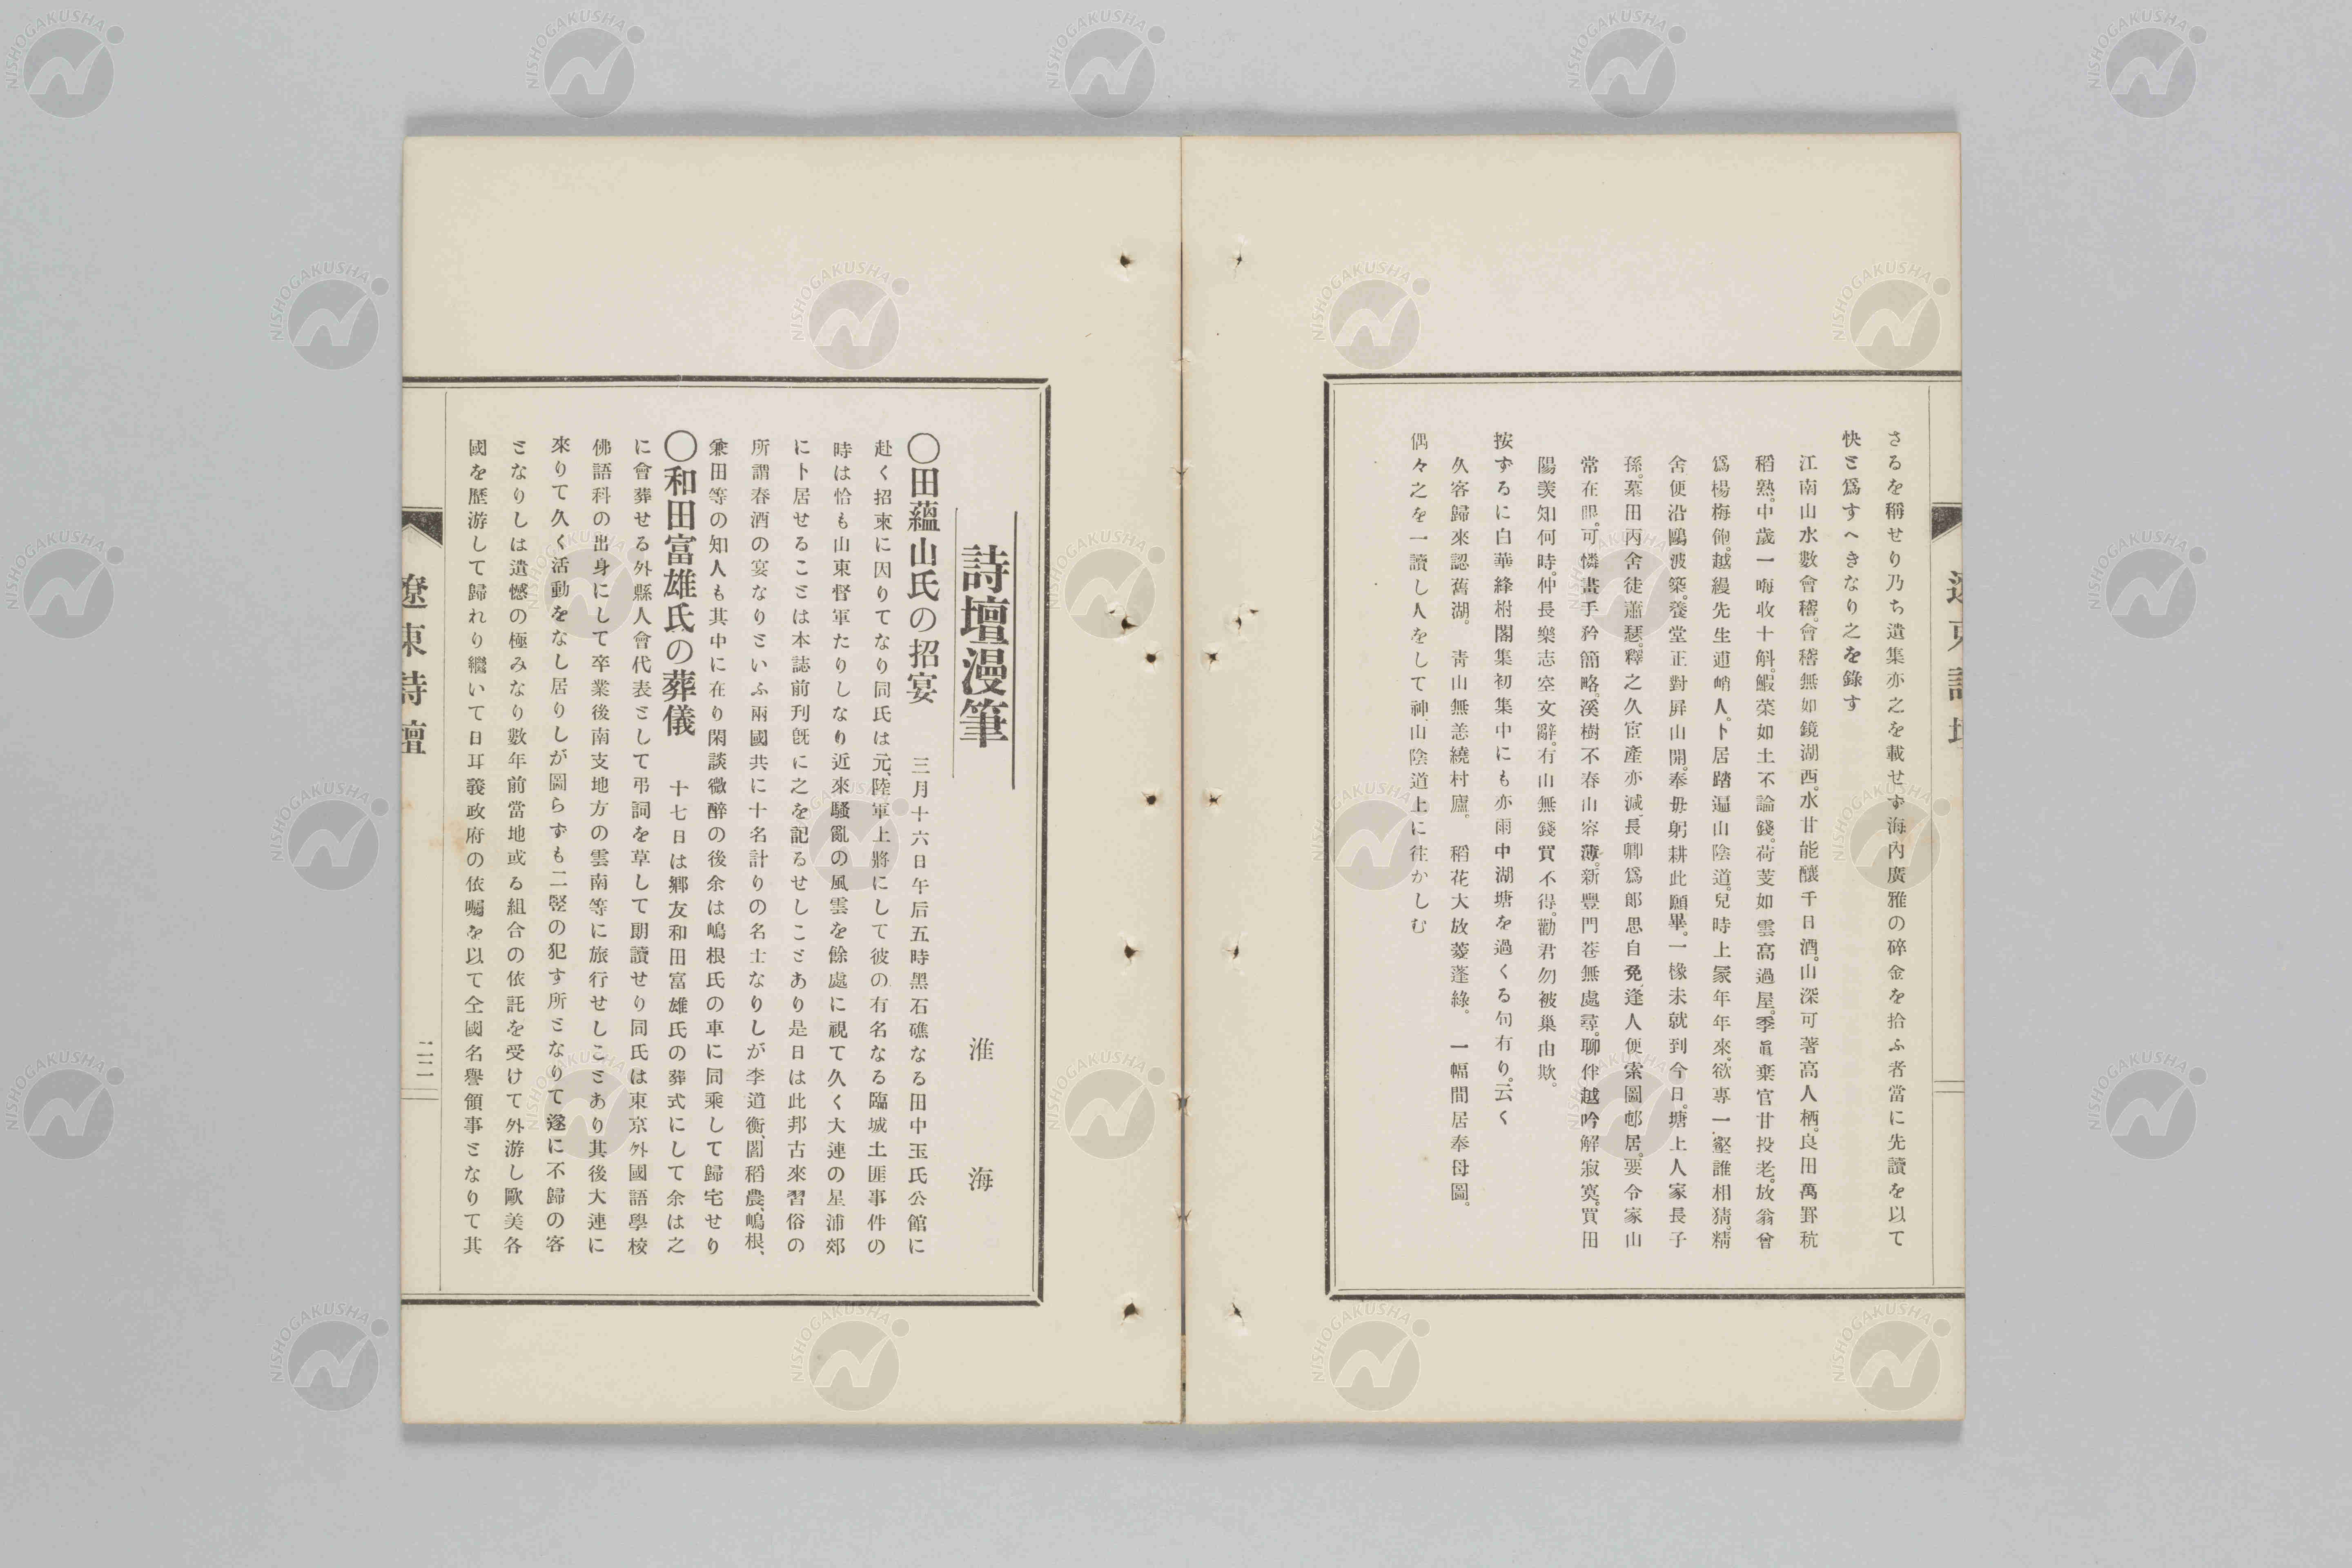 さるを稱せり乃ち遺集亦之を載せず海內廣雅の碎金を拾ふ者當に先讀を以て
快と爲すへきなり之を錄す
江南山水數會稽。會稽無如鏡湖西。水甘能釀千日酒。山深可著高人栖。良田萬罫秔
稻熟。中歲一晦收十斛。鰕菜如土不論錢。荷芰如雲高過屋。季眞棄官甘投老。放翁曾
爲楊梅飽。越縵先生逋峭人。卜居踏遍山陰道。兒時上冢年年來。欲專一壑誰相猜。精
舍便沿鷗波築。養堂正對屏山開。奉毋躬耕此願畢。一椽未就到今日。塘上人家長子
孫。墓田丙舍徒蕭瑟。釋之久宦產亦減、長卿爲郎思自免、逢人便索圖邨居。要令家山
常在眼。可憐畫手矜簡略。溪樹不春山容薄。新豐門巷無處尋。聊伴越吟解寂寞。買田
陽羨知何時。仲長樂志空文辭。有山無錢買不得。勸君勿被巢由欺。
按ずるに白華絳柎閣集初集中にも亦雨中湖塘を過くる句有り。云く
久客歸來認舊湖。　靑山無恙繞村廬。　稻花大放菱蓬綠。　一幅閒居奉母圖。
偶々之を一讀し人をして神、山陰道上に往かしむ
遼東詩壇
詩壇漫筆
淮海
〇田蘊山氏の招宴　三月十六日午后五時黑石礁なる田中玉氏公館に
赴く招柬に因りてなり同氏は元、陸軍上將にして彼の有名なる臨城土匪事件の
時は恰も山東督軍たりしなり近來騷亂の風雲を餘處に視て久く大連の星浦郊
に卜居せることは本誌前刊旣に之を記るせしことあり是日は此邦古來習俗の
所謂春酒の宴なりといふ兩國共に十名計りの名士なりしが李道衡、閻稻農、嶋根、
兼田等の知人も其中に在り閑談微醉の後余は嶋根氏の車に同乘して歸宅せり
〇和田富雄氏の葬儀　十七日は鄕友和田富雄氏の葬式にして余は之
に會葬せる外縣人會代表として弔詞を草して朗讀せり同氏は東京外國語學校
佛語科の出身にして卒業後南支地方の雲南等に旅行せしことあり其後大連に
來りて久く活動をなし居りしが圖らずも二竪の犯す所となりて遂に不歸の客
となりしは遺憾の極みなり數年前當地或る組合の依託を受けて外游し歐美各
國を歷游して歸れり繼いて日耳義政府の依囑を以て仝國名譽領事となりて其
遼東詩壇
NISHOGAKUSHA